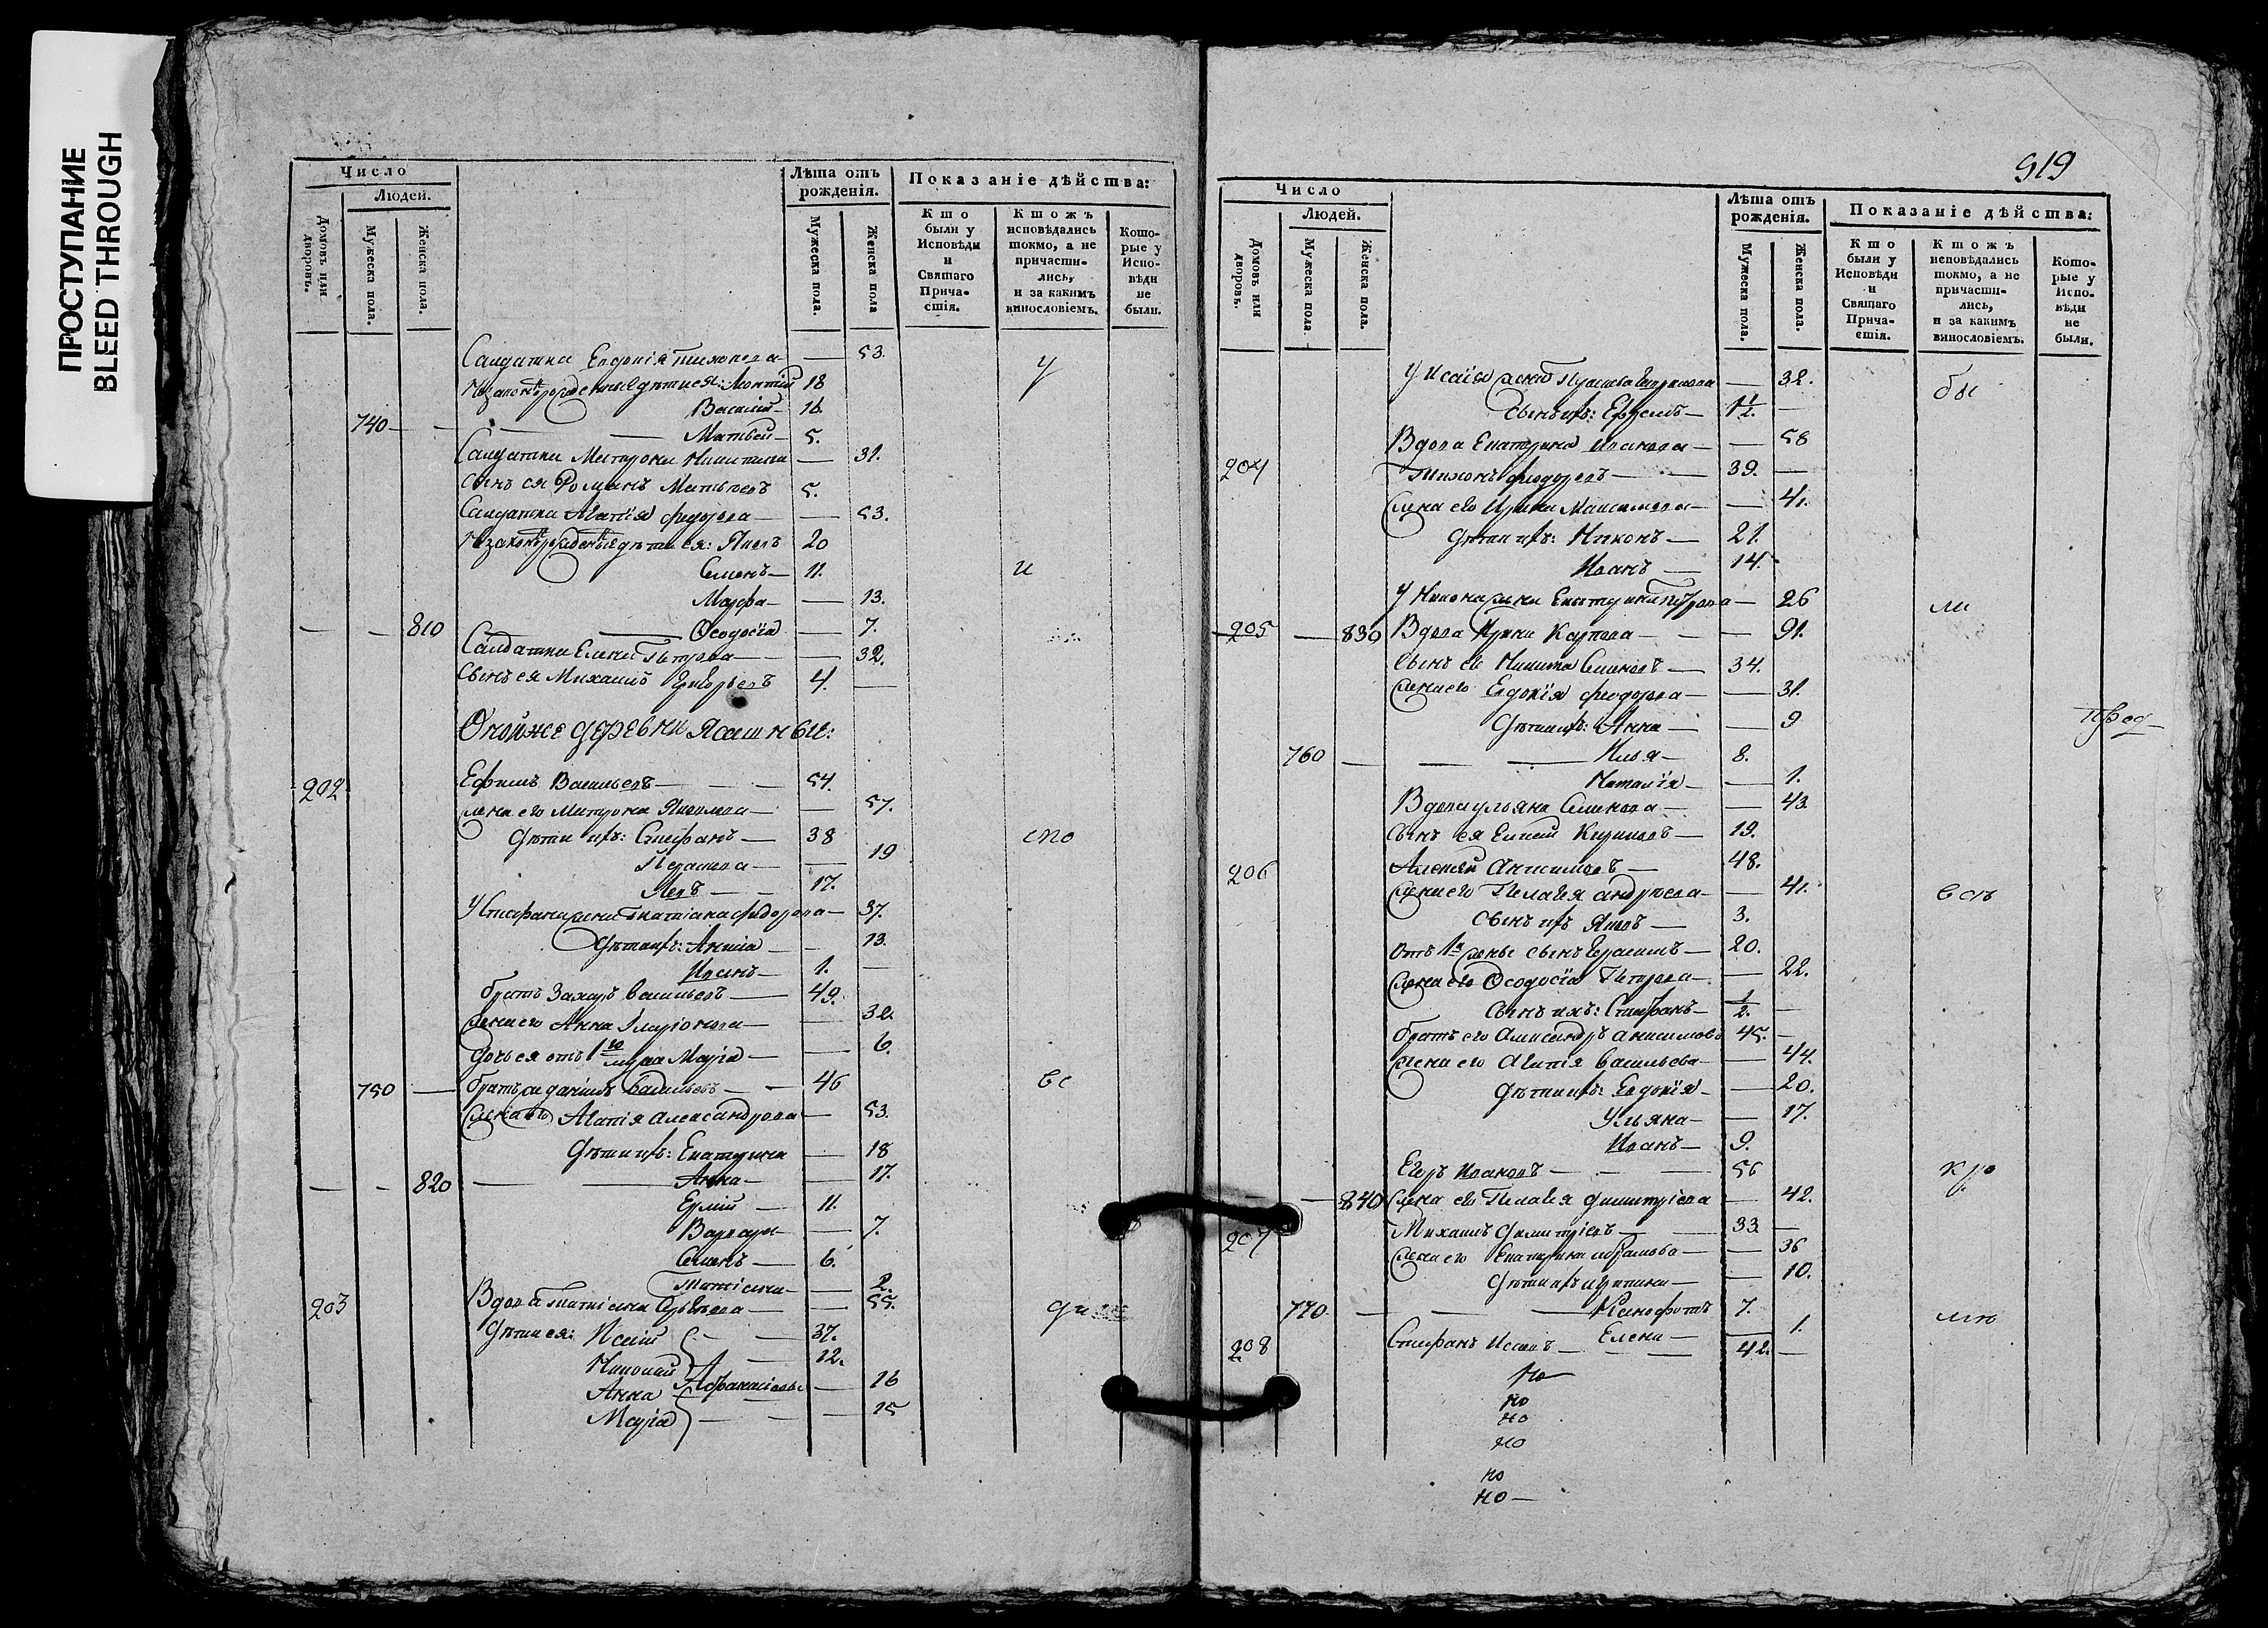 ПРОСТУПАНИЕ
BLEED THROUGH
Число
Людей.
Домовъ или дворовъ.
Мужеска пола.
Женска пола.
Лѣта отъ рожденія.
Мужеска пола.
Женска пола
Показаніе дѣйства:
Кто были у Исповѣди и Святаго Причастія.
Ктожъ исповѣдались токмо, а не причастились, и за какимъ винословіемъ.
Которые у Исповѣди не были.
Салдатка Евдокія — 53. у
Незаконнорожденные дѣти ея: 18
Василій — 16.
740 — — Матвей — 5.
Салдатка Матрона Никитина — 31.
Сынъ ея Романъ Матвеевъ 5.
Салдатка Агапія Федорова — 53.
Незаконнорожденные дѣти ея: Яковъ 20
Семенъ — 11. и
Марфа — 13.
— — 810 — Ѳеодосія — 7.
Салдатка Елена Петрова — 32.
Сынъ ея Михаилъ Григорьевъ 4. —
Оной же деревни Ясашныя:
202 Ефимъ Васильевъ — 54.
жена его Матрона Яковлева — 57.
Дѣти ихъ: Стефанъ — 38 спо
— 19
Левъ — 17.
У Стефана жена Татіана Федорова — 37.
Дѣти ихъ: — 13.
Иванъ — 1. —
братъ Захаръ Васильевъ — 49.
жена его Анна Иларіонова — 32.
дочь ея отъ 1го мужа Марія — 6.
750 — братъ Васильевъ — 46 ве
жена его Агапія Александрова — 53.
Дѣти ихъ: Екатерина — 18
— — 820 — Анна — 17.
Ермій — 11.
Варвара — 7.
Семенъ — 6.
Татіана — 2.
203 Вдова Татіана — 55. ди
Дѣти ея: Исай — 37.
Николай — 12.
Анна Афанасьевы — 16
Марія — 15
919
Число
Людей.
Домовъ или дворовъ.
Мужеска пола
Женска пола.
Лѣта отъ рожденія.
Мужеска пола.
Женска пола.
Показаніе дѣйства:
Кто были у Исповѣди и Святаго Причастія.
Ктожъ исповѣдались токмо, а не причастились, и за какимъ винословіемъ.
Которые у Исповѣди не были.
У Исаія жена — 32. бы
сынъ ихъ: — 1 1/2 —
Вдова Екатерина Иванова — 58
204 Тихонъ Феодоровъ — 39. —
жена его Ирина Максимова — 41.
Дѣти ихъ: Никонъ — 21.
Иванъ — 14.
У Никона жена Екатерина Петрова — 26 ли
205 — 830 Вдова Ирина Карпова — 91.
сынъ ея Никита Семеновъ — 34.
жена его Евдокія Феодорова — 31.
Дѣти ихъ: Анна — 9
760 — — Илья — 8.
Наталія — 1.
Вдова Ульяна Семенова — 43.
Сынъ ея Кириловъ — 19.
206 Алексѣй Анисимовъ — 48.
жена его Пелагея Андреева — 41. всѣ
Сынъ ихъ Яковъ — 3.
отъ 1й жены сынъ Герасимъ — 20.
жена его Ѳеодосія Петрова — 22.
Сынъ ихъ: Стефанъ — 1/2. —
братъ его Александръ Анисимовъ 45. —
жена его Агапія Васильева — 44.
Дѣти ихъ: Евдокія — 20.
Ульяна — 17.
Иванъ — 9.
Егоръ Ивановъ — 56 кро
— 840 жена его Пелагея Димитріева — 42.
207 Михаилъ Димитріевъ — 33. —
жена его Екатерина — 36
Дѣти ихъ — 10.
770 — — Ксенофонтъ 7. мѣ
Елена — 1.
208 Стефанъ Исаевъ — 42. —
пред
но
но
но
но
но
но —